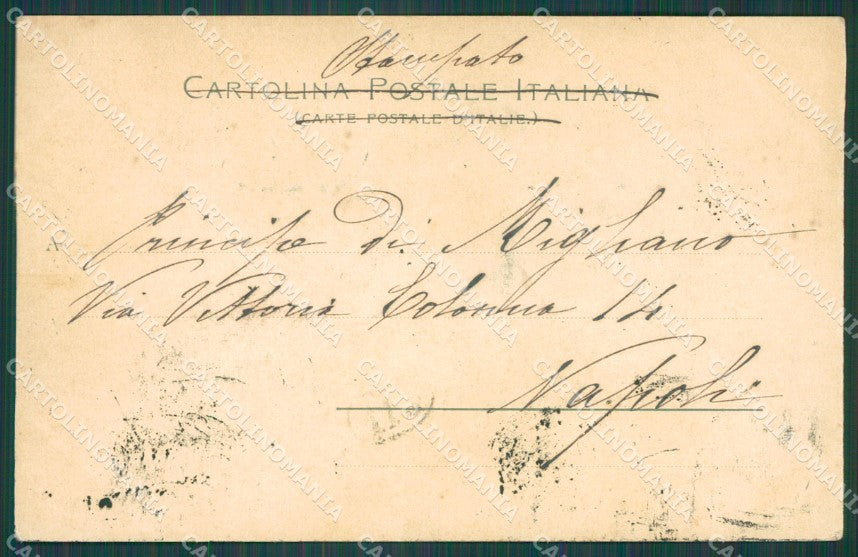 Stampato
CARTOLINA POSTALE ITALIANA
(CARTE POSTALE D'ITALIE.)
A Principe Di Migliano
Via Vittoria Colonna 14
Napoli